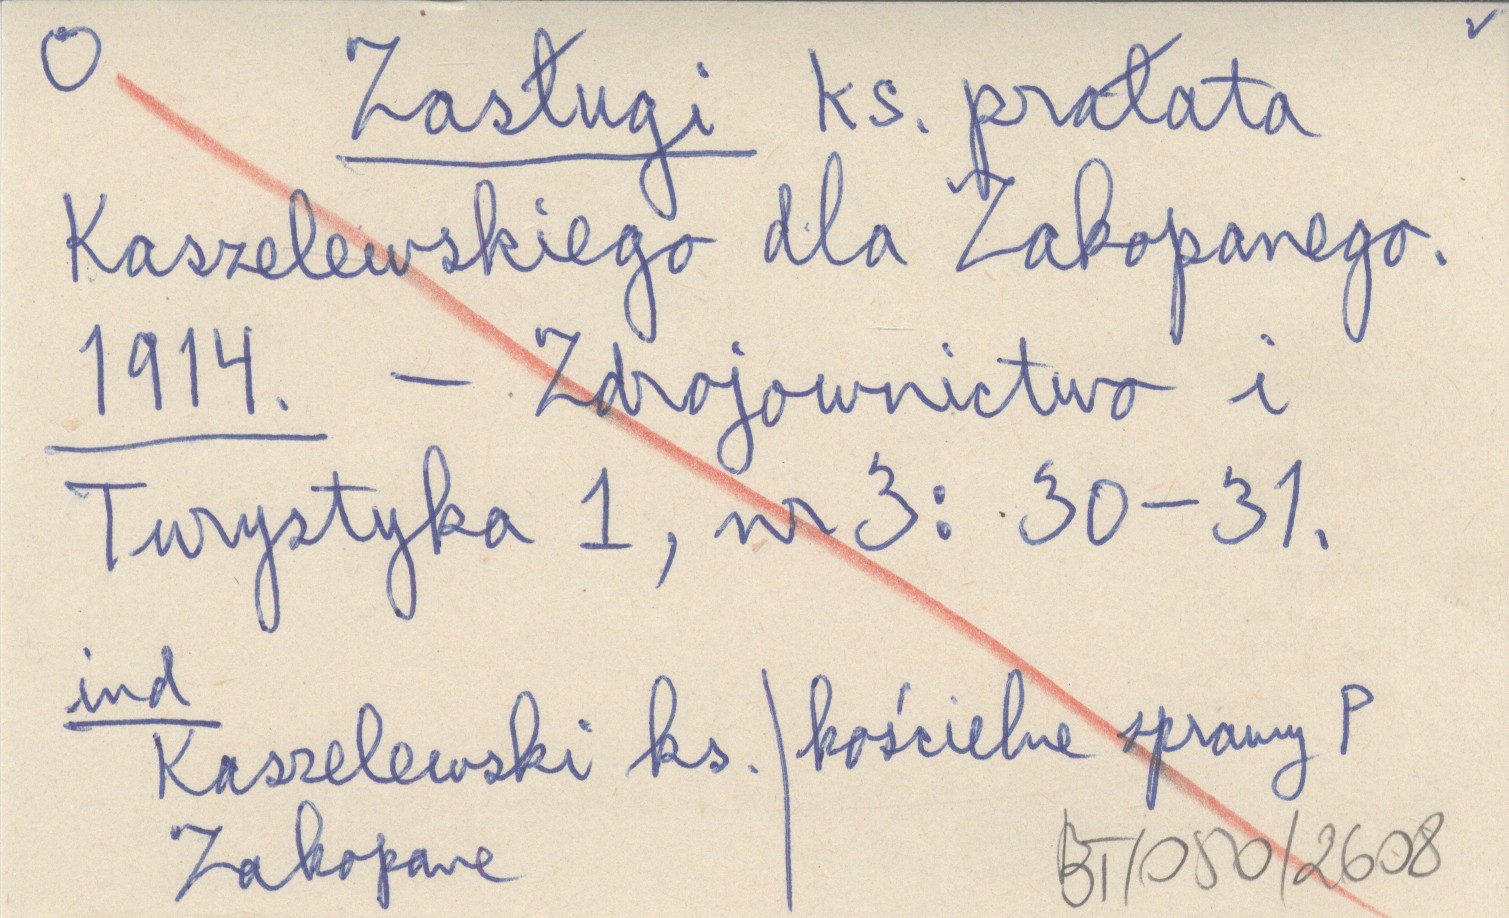 O Zasługi ks. prałata
Kaszelewskiego dla Zakopanego.
1914. – Zdrojownictwo i
Turystyka 1, nr 3: 30–31.
ind
Kaszelewski ks. | kościelne sprawy P
Zakopane
BT/050/2608